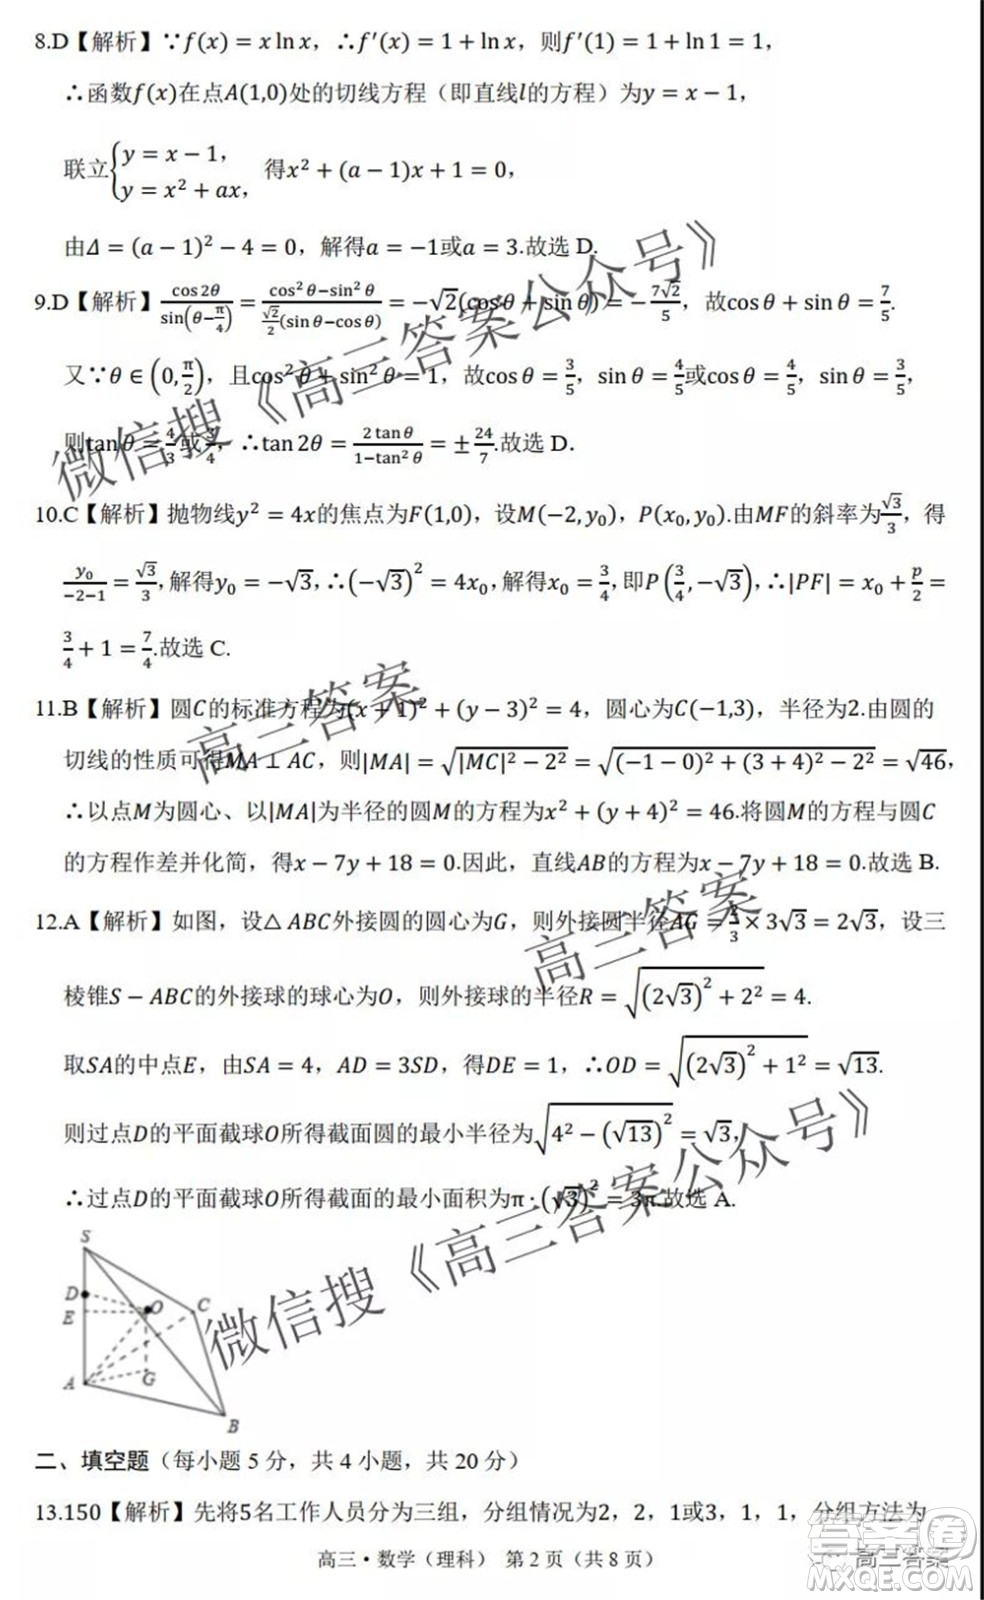 8.D【解析】∵f(x) = x ln x，∴f′(x) = 1 + ln x，则f′(1) = 1 + ln 1 = 1，
∴函数f(x)在点A(1,0)处的切线方程（即直线l的方程）为y = x − 1，
联立{y = x − 1， y = x² + ax， 得x² + (a − 1)x + 1 = 0，
由Δ = (a − 1)² − 4 = 0，解得a = −1或a = 3.故选 D.
9.D【解析】cos 2θ/sin(θ−π/4) = (cos² θ−sin² θ)/(√2/2(sin θ−cos θ)) = −√2(cos θ + sin θ) = −7√2/5，故cos θ + sin θ = 7/5.
又∵θ ∈ (0, π/2)，且cos² θ + sin² θ = 1，故cos θ = 3/5，sin θ = 4/5或cos θ = 4/5，sin θ = 3/5，
则tan θ = 4/3或3/4，∴tan 2θ = 2 tan θ/(1−tan² θ) = ± 24/7.故选 D.
10.C【解析】抛物线y² = 4x的焦点为F(1,0)，设M(−2, y₀)，P(x₀, y₀).由MF的斜率为√3/3，得
y₀/(−2−1) = √3/3，解得y₀ = −√3，∴(−√3)² = 4x₀，解得x₀ = 3/4，即P(3/4, −√3)，∴|PF| = x₀ + p/2 =
3/4 + 1 = 7/4.故选 C.
11.B【解析】圆C的标准方程为(x + 1)² + (y − 3)² = 4，圆心为C(−1,3)，半径为2.由圆的
切线的性质可得MA ⊥ AC，则|MA| = √(|MC|² − 2²) = √((−1 − 0)² + (3 + 4)² − 2²) = √46，
∴以点M为圆心、以|MA|为半径的圆M的方程为x² + (y + 4)² = 46.将圆M的方程与圆C
的方程作差并化简，得x − 7y + 18 = 0.因此，直线AB的方程为x − 7y + 18 = 0.故选 B.
12.A【解析】如图，设△ ABC外接圆的圆心为G，则外接圆半径AG = 2/3 × 3√3 = 2√3，设三
棱锥S − ABC的外接球的球心为O，则外接球的半径R = √((2√3)² + 2²) = 4.
取SA的中点E，由SA = 4，AD = 3SD，得DE = 1，∴OD = √((2√3)² + 1²) = √13.
则过点D的平面截球O所得截面圆的最小半径为√(4² − (√13)²) = √3，
∴过点D的平面截球O所得截面的最小面积为π · (√3)² = 3π.故选 A.
S
D
E
O
C
A
G
B
二、填空题（每小题 5 分，共 4 小题，共 20 分）
13.150【解析】先将5名工作人员分为三组，分组情况为2，2，1或3，1，1，分组方法为
高三·数学（理科） 第 2 页（共 8 页）
微信搜《高三答案公众号》
高三答案
高三答案
微信搜《高三答案公众号》
答案卷
高三答案
MXQE.COM